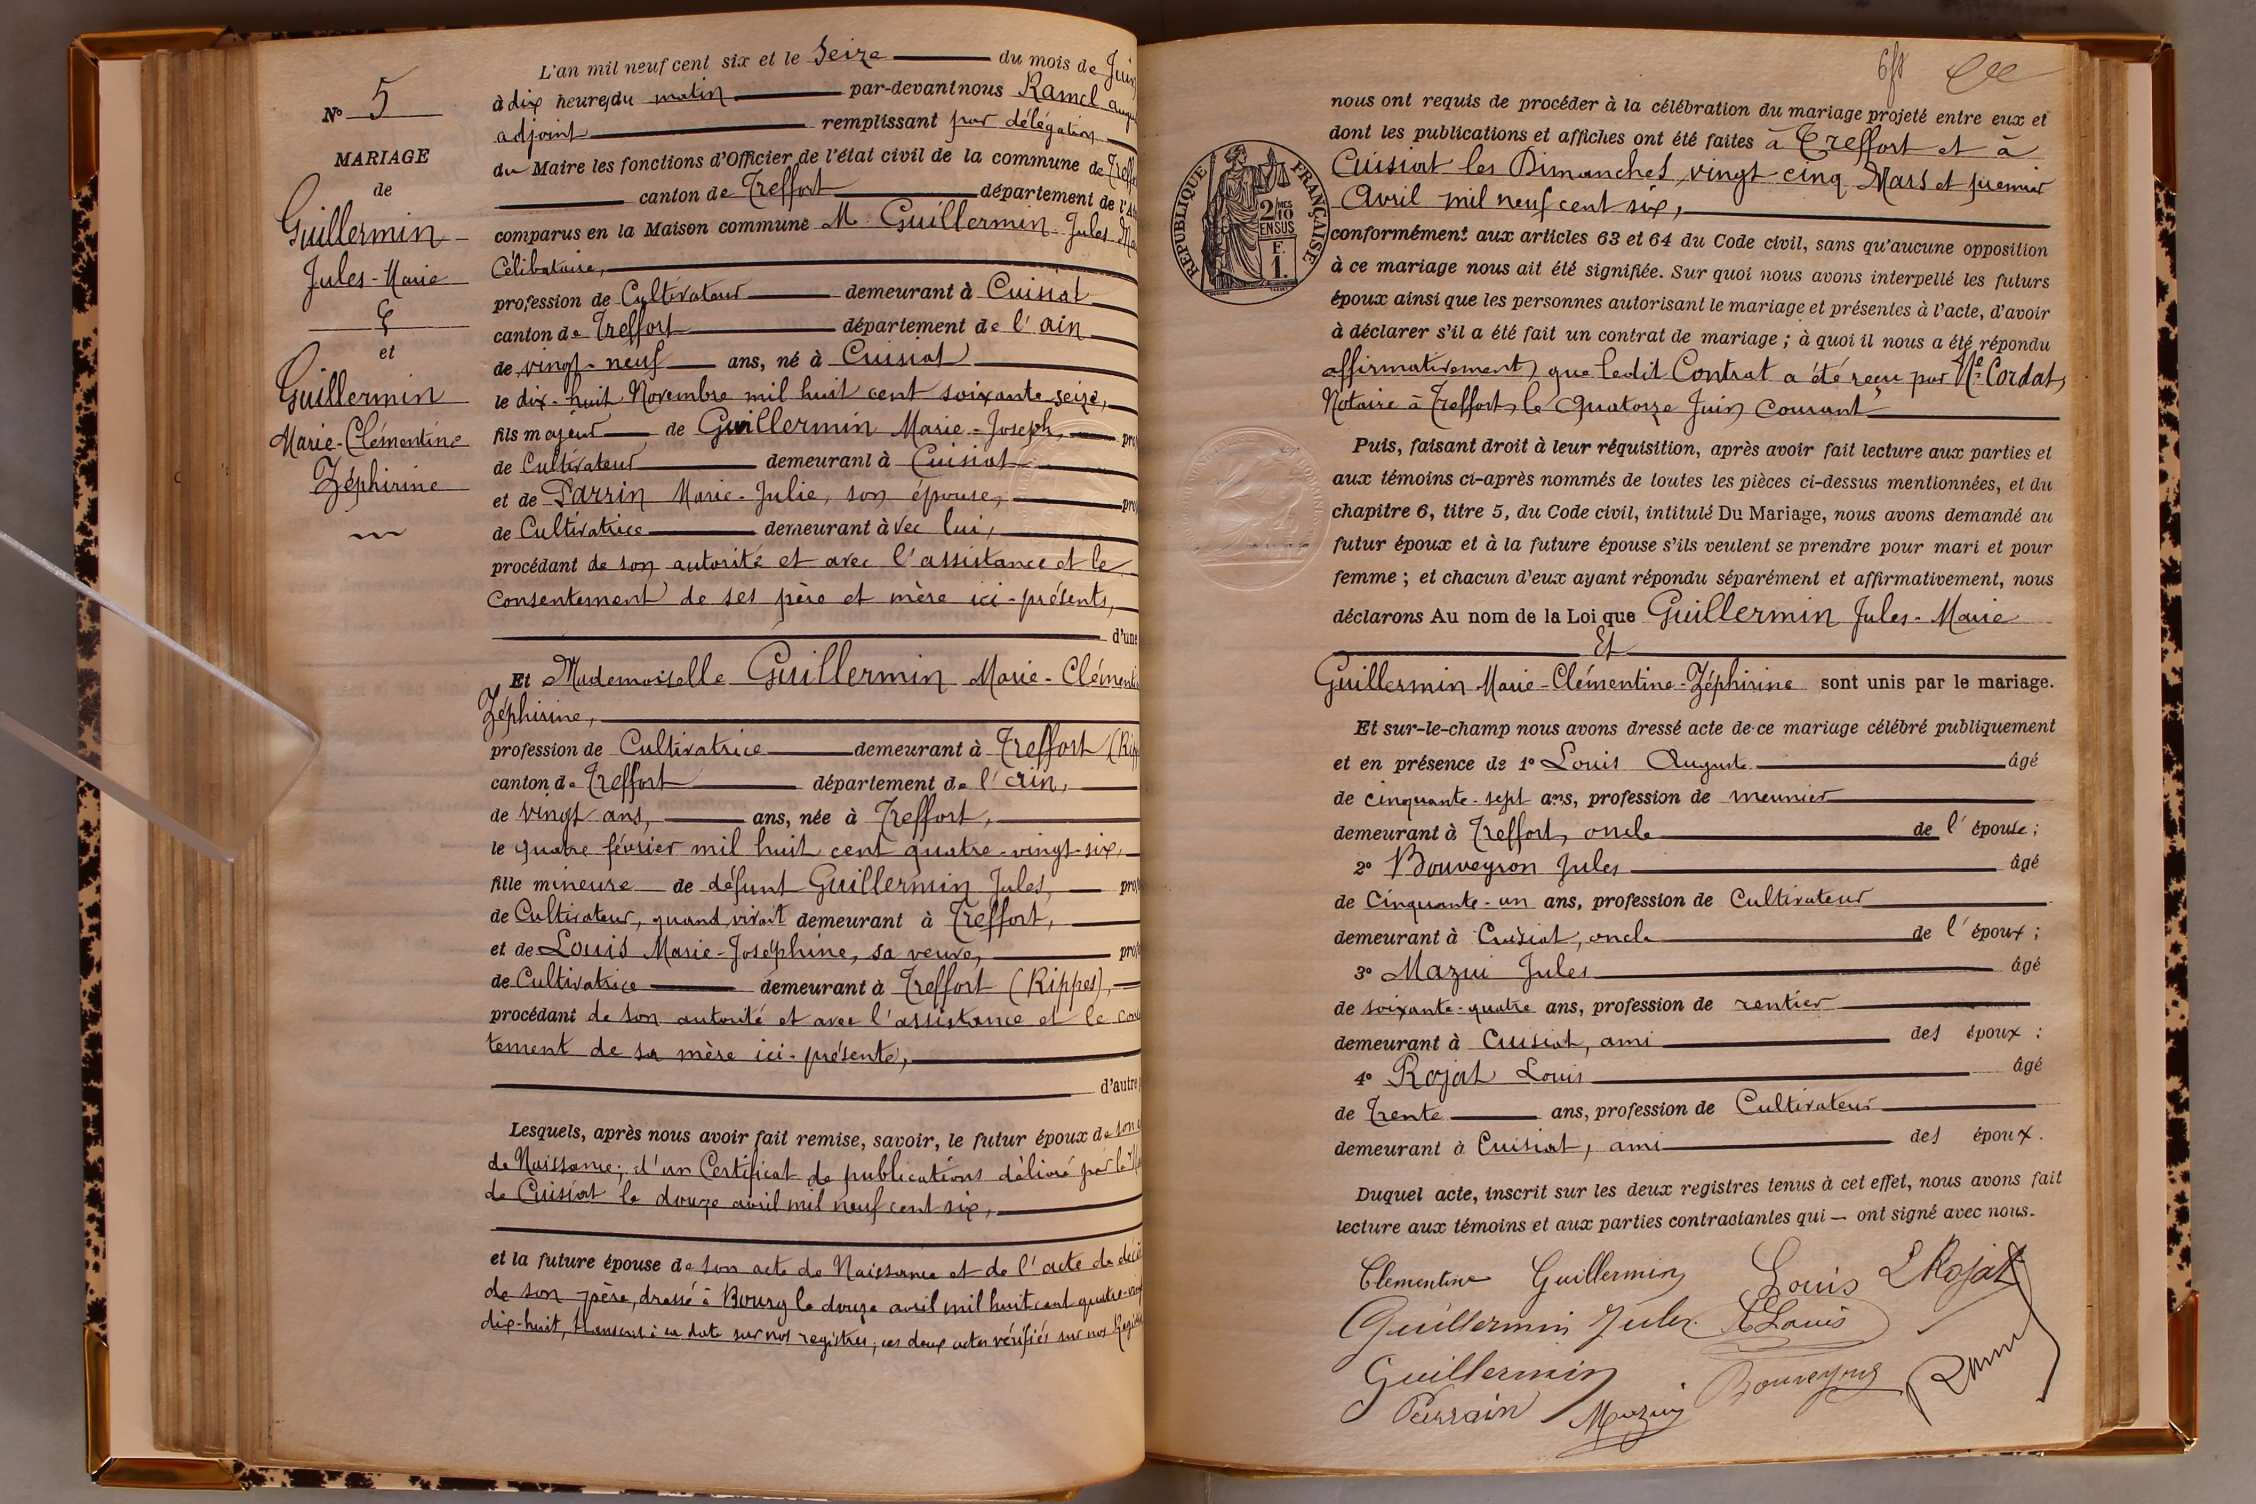 L'an mil neuf cent six et le Seize du mois de Juin
à dix heures du matin par-devant nous Ramel
adjoint remplissant par délégation
du Maire les fonctions d'Officier de l'état civil de la commune de Treffo
canton de Treffort département de l'A
comparus en la Maison commune M. Guillermin Jules-Ma
Célibataire,
profession de Cultivateur demeurant à Cuisiat
canton de Treffort département de l'ain
de vingt-neuf ans, né à Cuisiat
le dix-huit Novembre mil huit cent soixante-seize,
fils majeur de Guillermin Marie-Joseph, pro
de Cultivateur demeurant à Cuisiat
et de Parrin Marie-Julie, son épouse, pro
de Cultivatrice demeurant à vec lui,
procédant de son autorité et avec l'assistance et le
Consentement de ses père et mère ici-présents,
d'une
Et Mademoiselle Guillermin Marie-Clémenti
Zéphirine,
profession de Cultivatrice demeurant à Treffort (Ripp
canton de Treffort département de l'ain,
de vingt ans, ans, née à Treffort,
le quatre février mil huit cent quatre-vingt-six,
fille mineure de défunt Guillermin Jules, pro
de Cultivateur, quand vivait demeurant à Treffort,
et de Louis Marie-Joséphine, sa veuve, pro
de Cultivatrice demeurant à Treffort (Rippes),
procédant de son autorité et avec l'assistance et le con
tement de sa mère ici-présente,
d'autre
Lesquels, après nous avoir fait remise, savoir, le futur époux de son
de Naissance; d'un Certificat de publications délivré par le M
de Cuisiat le douze avril mil neuf cent six,
et la future épouse de son acte de Naissance et de l'acte de décè
de son père, dressé à Bourg le douze avril mil huit cent quatre-vingt
dix-huit, transcrit à sa date sur nos registres; ces deux actes vérifiés sur nos Regis
No 5
MARIAGE
de
Guillermin
Jules-Marie
&
et
Guillermin
Marie-Clémentine
Zéphirine
nous ont requis de procéder à la célébration du mariage projeté entre eux et
dont les publications et affiches ont été faites à Treffort et à
Cuisiat les Dimanches vingt-cinq Mars et premier
Avril mil neuf cent six,
conformément aux articles 63 et 64 du Code civil, sans qu'aucune opposition
à ce mariage nous ait été signifiée. Sur quoi nous avons interpellé les futurs
époux ainsi que les personnes autorisant le mariage et présentes à l'acte, d'avoir
à déclarer s'il a été fait un contrat de mariage ; à quoi il nous a été répondu
affirmativement, que ledit Contrat a été reçu par Me Cordat,
Notaire à Treffort, le quatorze Juin courant
Puis, faisant droit à leur réquisition, après avoir fait lecture aux parties et
aux témoins ci-après nommés de toutes les pièces ci-dessus mentionnées, et du
chapitre 6, titre 5, du Code civil, intitulé Du Mariage, nous avons demandé au
futur époux et à la future épouse s'ils veulent se prendre pour mari et pour
femme ; et chacun d'eux ayant répondu séparément et affirmativement, nous
déclarons Au nom de la Loi que Guillermin Jules-Marie
Et
Guillermin Marie-Clémentine-Zéphirine sont unis par le mariage.
Et sur-le-champ nous avons dressé acte de ce mariage célébré publiquement
et en présence de 1o Louis Auguste âgé
de cinquante-sept ans, profession de meunier
demeurant à Treffort, oncle de l'épouse ;
2o Bouveyron Jules âgé
de Cinquante-un ans, profession de Cultivateur
demeurant à Cuisiat, oncle de l'époux ;
3o Mazui Jules âgé
de soixante-quatre ans, profession de rentier
demeurant à Cuisiat, ami des époux ;
4o Rojat Louis âgé
de Trente ans, profession de Cultivateur
demeurant à Cuisiat, ami des époux.
Duquel acte, inscrit sur les deux registres tenus à cet effet, nous avons fait
lecture aux témoins et aux parties contractantes qui — ont signé avec nous.
Clementine Guillermin Louis L Rojat
Guillermin Jules Louis
Guillermin Bouveyron
Perrain Mazuy
RÉPUBLIQUE FRANÇAISE
2/10MES
EN SUS
F.
1.